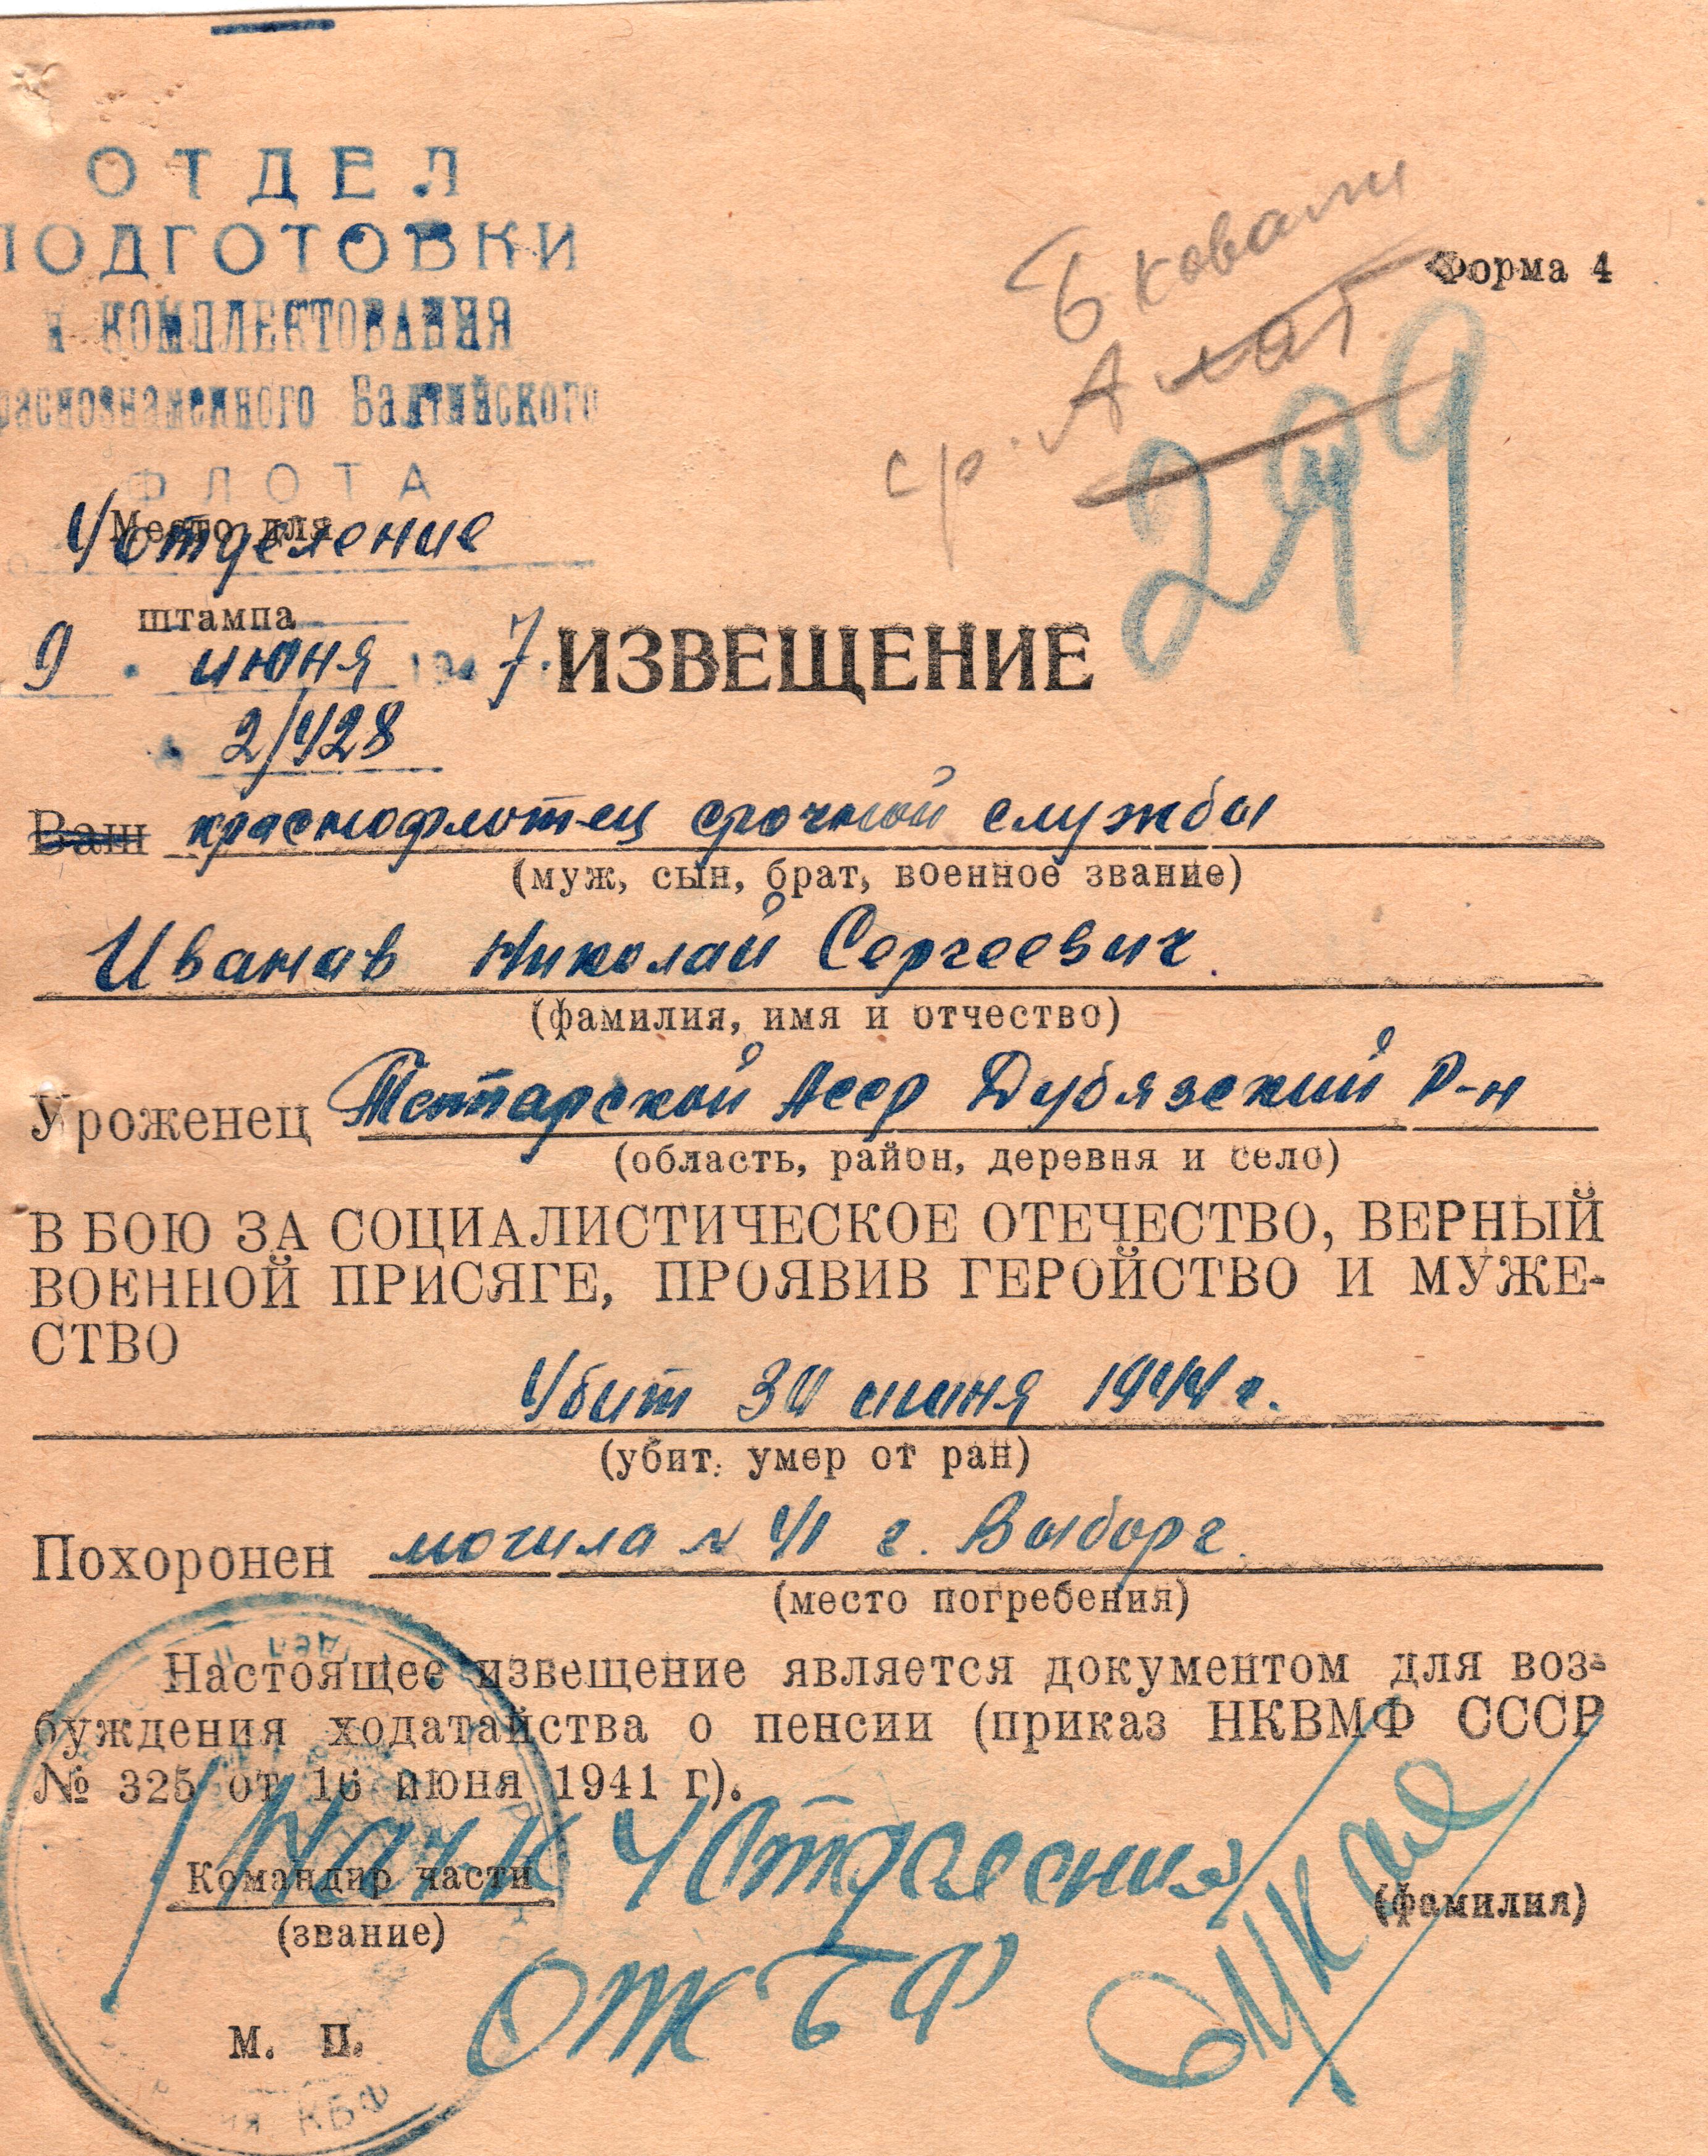 ОТДЕЛ
ПОДГОТОВКИ
и КОМПЛЕКТОВАНИЯ
раснознаменного Балтийского
ФЛОТА
Форма 4
ср. Алат
299
Место для
4 отделение
штампа
9 июня 1947.
2/428
ИЗВЕЩЕНИЕ
Ваш краснофлотец срочной службы
(муж, сын, брат, военное звание)
Иванов Николай Сергеевич.
(фамилия, имя и отчество)
Уроженец Татарской Асср Дубязский р-н
(область, район, деревня и село)
В БОЮ ЗА СОЦИАЛИСТИЧЕСКОЕ ОТЕЧЕСТВО, ВЕРНЫЙ
ВОЕННОЙ ПРИСЯГЕ, ПРОЯВИВ ГЕРОЙСТВО И МУЖЕ-
СТВО
Убит 30 июня 1944 г.
(убит. умер от ран)
Похоронен могила N 41 г. Выборг.
(место погребения)
Настоящее извещение является документом для воз-
буждения ходатайства о пенсии (приказ НКВМФ СССР
№ 325 от 16 июня 1941 г).
Нач-к 4 Отделения
Командир части
(звание)
(фамилия)
М. П.
КБФ